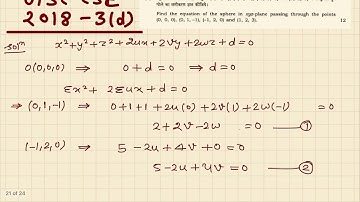 गोले का समीकरण ज्ञात कीजिये।
Find the equation of the sphere in xyz-plane passing through the points
(0, 0, 0), (0, 1, -1), (-1, 2, 0) and (1, 2, 3). 12
2018 - 3(d)
Solⁿ x² + y² + z² + 2ux + 2vy + 2wz + d = 0
O(0,0,0) ⇒ 0 + d = 0 ⇒ d = 0
Σx² + 2Σux + d = 0
⇒ (0,1,-1) ⇒ 0 + 1 + 1 + 2u(0) + 2v(1) + 2w(-1) = 0
2 + 2v - 2w = 0 — ①
(-1,2,0) ⇒ 5 - 2u + 4v + 0 = 0
5 - 2u + 4v = 0 — ②
21 of 24